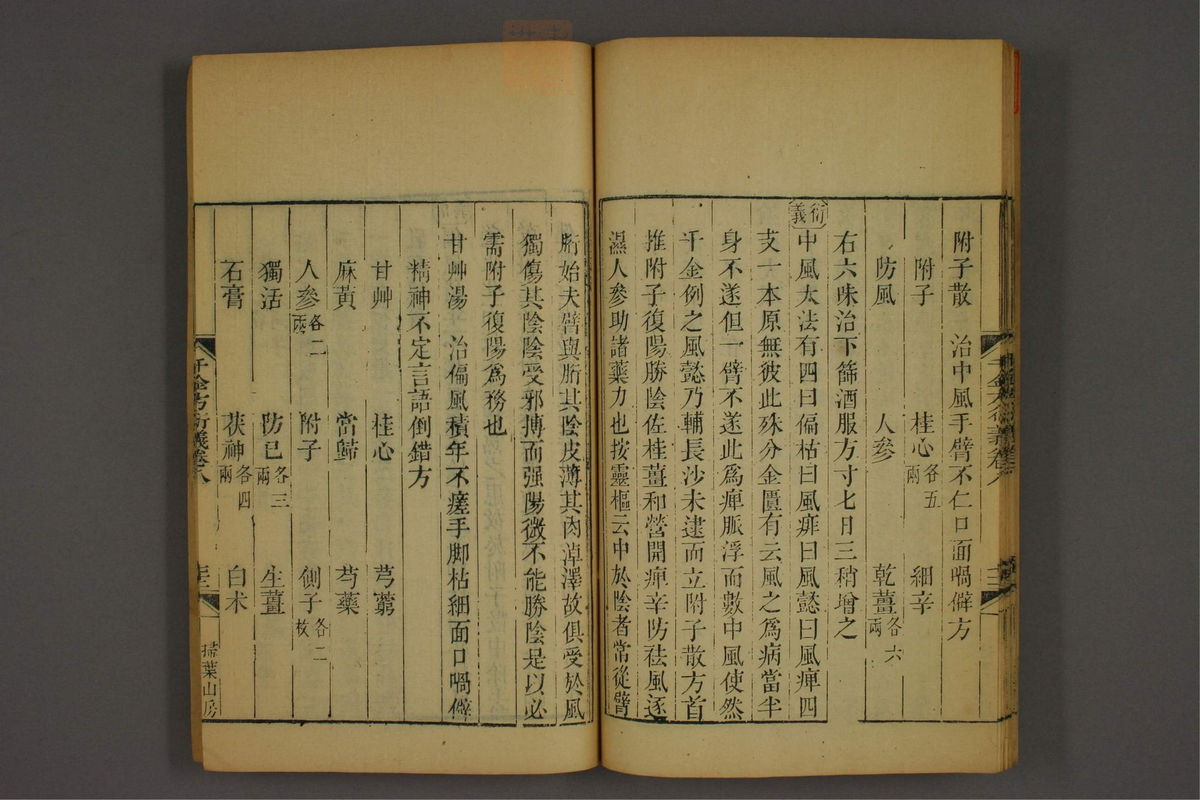 附子散　治中風手臂不仁口面喎僻方
附子　桂心各五兩　細辛
防風　人參　乾薑各六兩
右六味治下篩酒服方寸七日三稍增之
衍義
中風大法有四曰偏枯曰風痱曰風懿曰風痺四
支一本原無彼此殊分金匱有云風之爲病當半
身不遂但一臂不遂此爲痺脈浮而數中風使然
千金例之風懿乃輔長沙未逮而立附子散方首
推附子復陽勝陰佐桂薑和營開痺辛防祛風逐
濕人參助諸藥力也按靈樞云中於陰者常從臂
胻始夫臂與胻其陰皮薄其肉淖澤故俱受於風
獨傷其陰陰受邪搏而强陽微不能勝陰是以必
需附子復陽爲務也
甘艸湯　治偏風積年不瘥手脚枯細面口喎僻
精神不定言語倒錯方
甘艸　桂心　芎藭
麻黃　當歸　芍藥
人參各二兩　附子　側子各二枚
獨活　防已各三兩　生薑
石膏　茯神各四兩　白术
千金方衍義卷八
掃葉山房